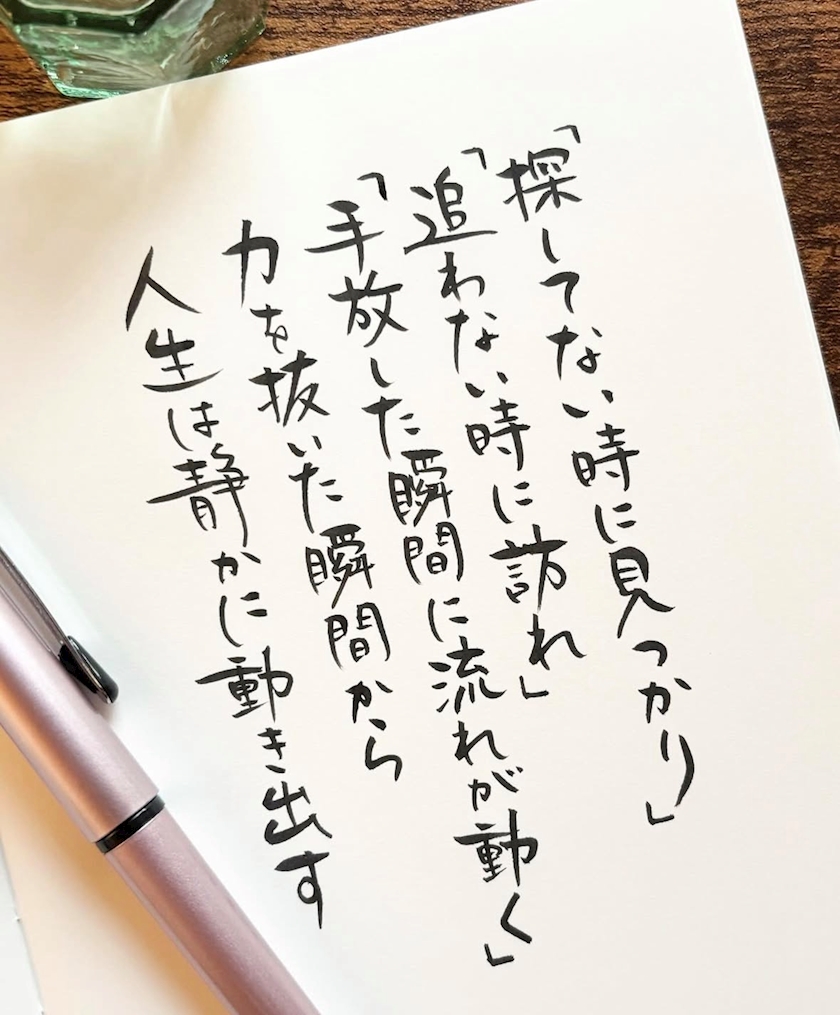 「探してない時に見つかり」
「追わない時に訪れ」
「手放した瞬間に流れが動く」
力を抜いた瞬間から
人生は静かに動き出す